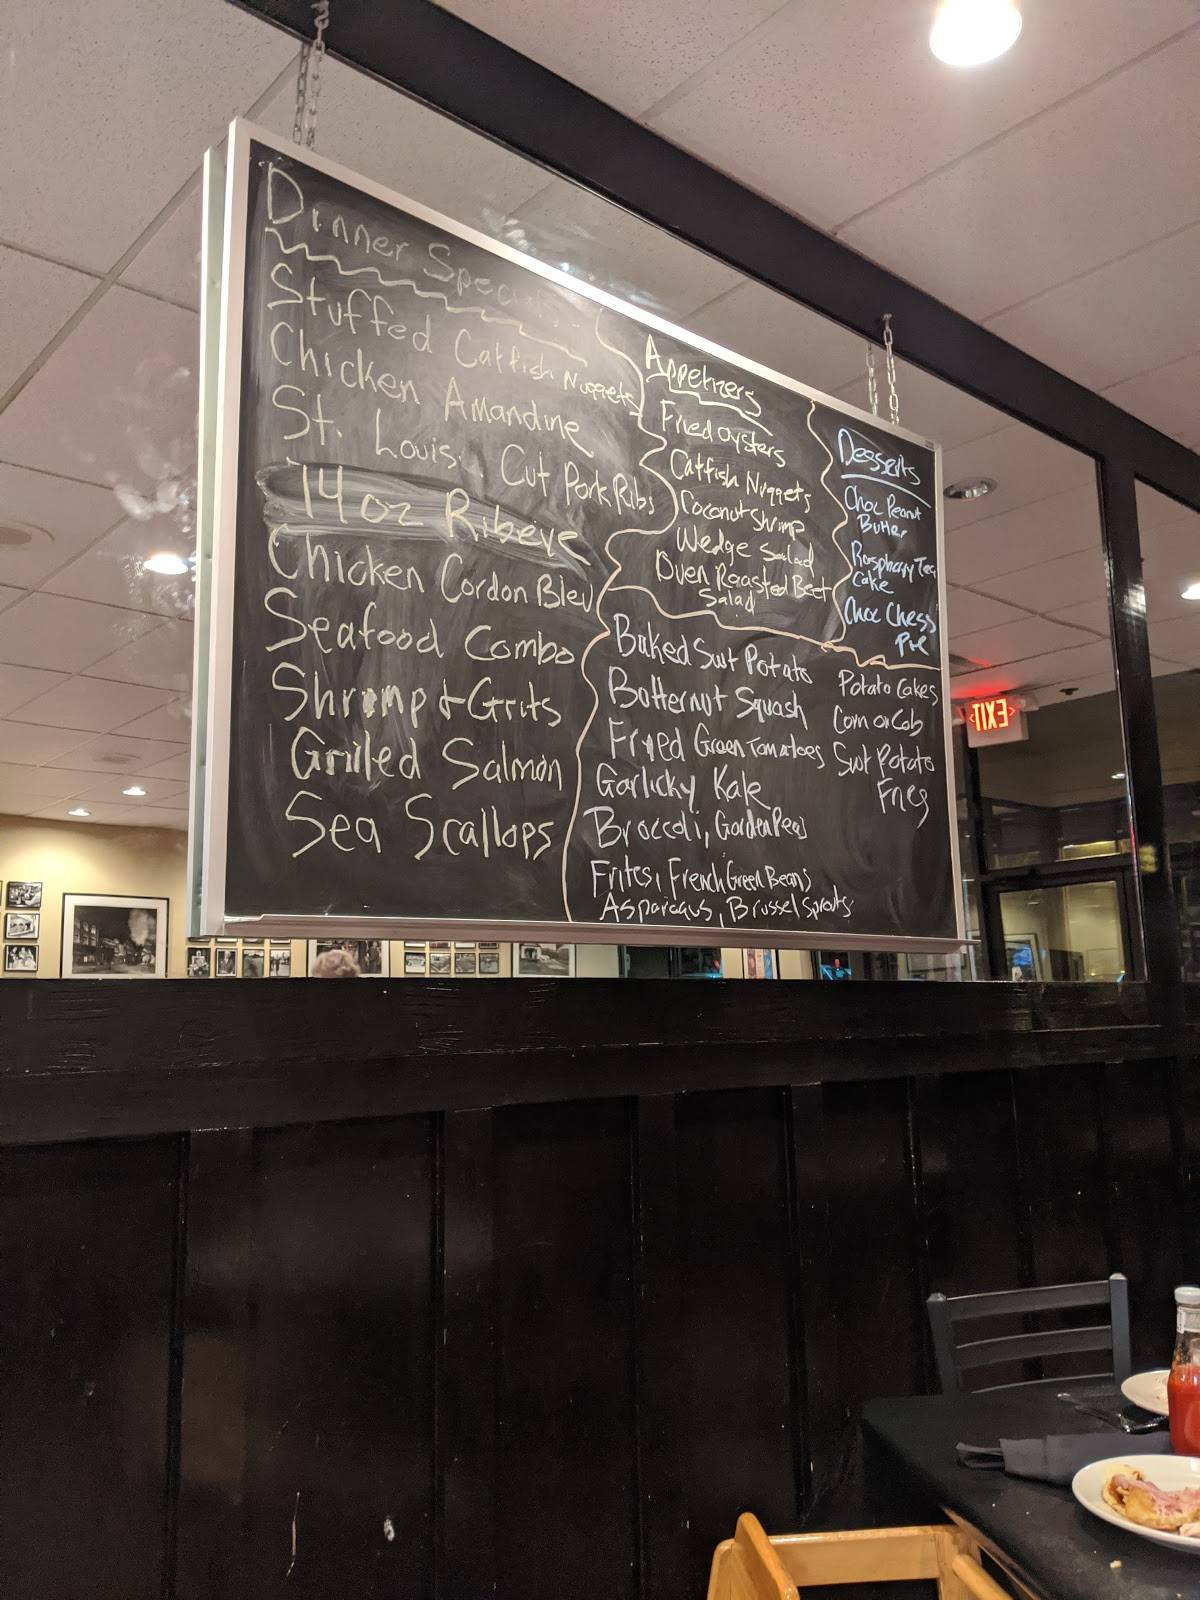 Dinner Specials
Stuffed Catfish Nuggets
Chicken Amandine
St. Louis Cut Pork Ribs
14 oz Ribeye
Chicken Cordon Bleu
Seafood Combo
Shrimp + Grits
Grilled Salmon
Sea Scallops
Appetizers
Fried Oysters
Catfish Nuggets
Coconut Shrimp
Wedge Salad
Oven Roasted Beet
Salad
Desserts
Choc Peanut
Butter
Raspberry Tea
Cake
Choc Chess
Pie
Baked Swt Potato
Butternut Squash
Fryed Green Tomatoes
Garlicky Kale
Broccoli, Garden Peas
Frites, French Green Beans
Asparagus, Brussel Sprouts
Potato Cakes
Corn on Cob
Swt Potato
Fries
EXIT